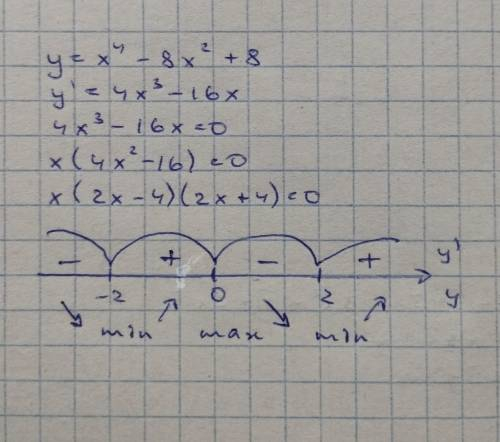 y = x⁴ - 8x² + 8
y' = 4x³ - 16x
4x³ - 16x = 0
x(4x² - 16) = 0
x(2x - 4)(2x + 4) = 0
- + - + y'
-2 0 2 y
↘ min ↗ max ↘ min ↗